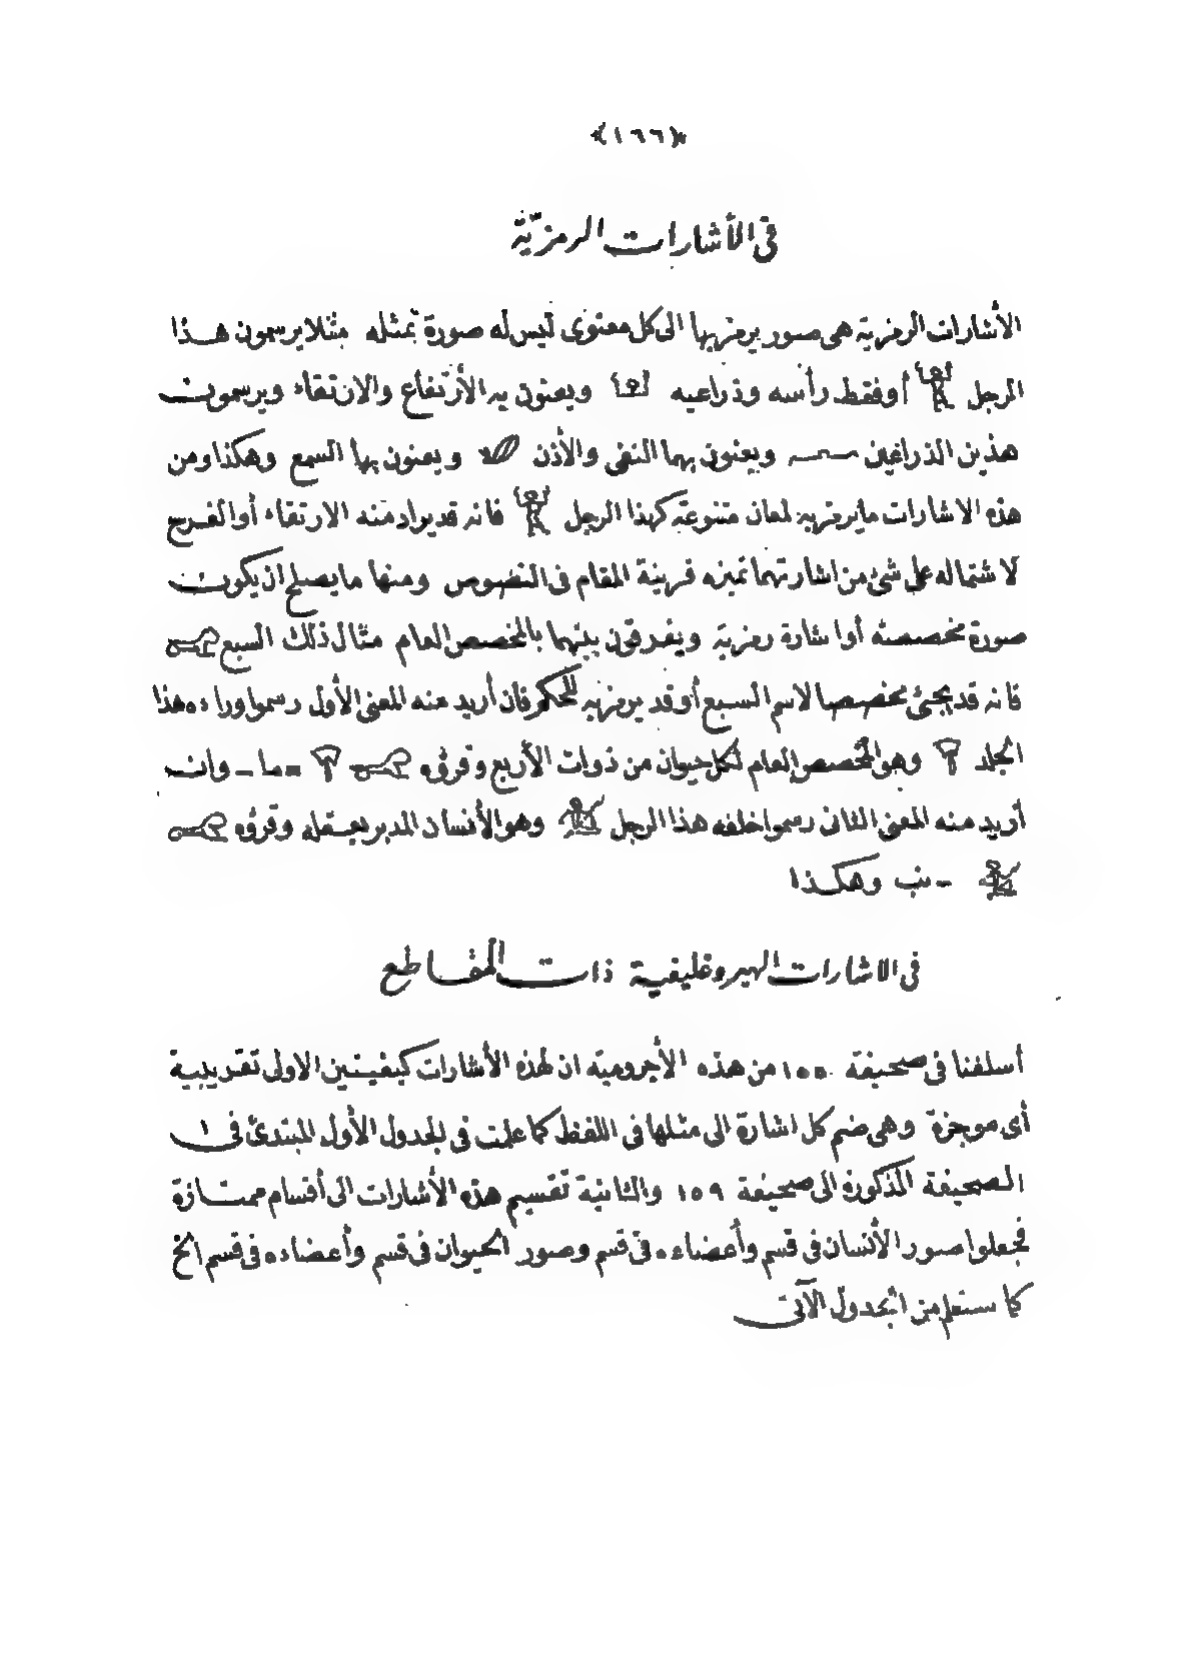 ﴿١٦٦﴾
فى الأشارات الرمزيّة
الأشارات الرمزية هى صور يرمز بها الى كل معنوى ليس له صورة تمثله مثلا يرسمون هـذا
الرجل أو فقط رأسه وذراعيه ويعنون به الأرتفاع والارتقاء ويرسمون
هذين الذراعين ويعنون بهما النفى والأذن ويعنون بها السمع وهكذا ومن
هذه الاشارات ما يرمز به لمعان متنوعة كهذا الرجل فانه قد يراد منه الارتقاء أو الفـرح
لاشتماله على شئ من اشارتهما تميزه قرينة المقام فى النصوص ومنها ما يصلح ان يكون
صورة مخصصة أو اشارة رمزية ويفرقون بينهما بالمخصص العام مثال ذلك السبع
فانه قد يجئ مخصصا لاسم السبع أو قد يرمز به للحكم فان أريد منه المعنى الأول رسموا وراءه هذا
الجلد وهو المخصص العام لكل حيوان من ذوات الأربع وقرؤه = ما - وان
أريد منه المعنى الثانى رسموا خلفه هذا الرجل وهو الأنسان المدبر بعـقله وقرؤه
- نب وهكـذا
فى الاشارات الهيروغليفية ذات المقاطع
أسلفنا فى صحيفة ١٥٥ من هذه الأجرومية ان لهذه الأشارات كيفيتـين الاولى تقـريبية
أى موجزة وهى ضم كل اشارة الى مثلها فى اللفظ كما علمت فى الجدول الأول المبتدئ فى
الصحيفة المذكورة الى صحيفة ١٥٩ والثانية تقسيم هذه الأشارات الى أقسام ممتـازة
فجعلوا صور الأنسان فى قسم وأعضاءه فى قسم وصور الحيوان فى قسم وأعضاءه فى قسم الخ
كما ستعلم من الجدول الآتى